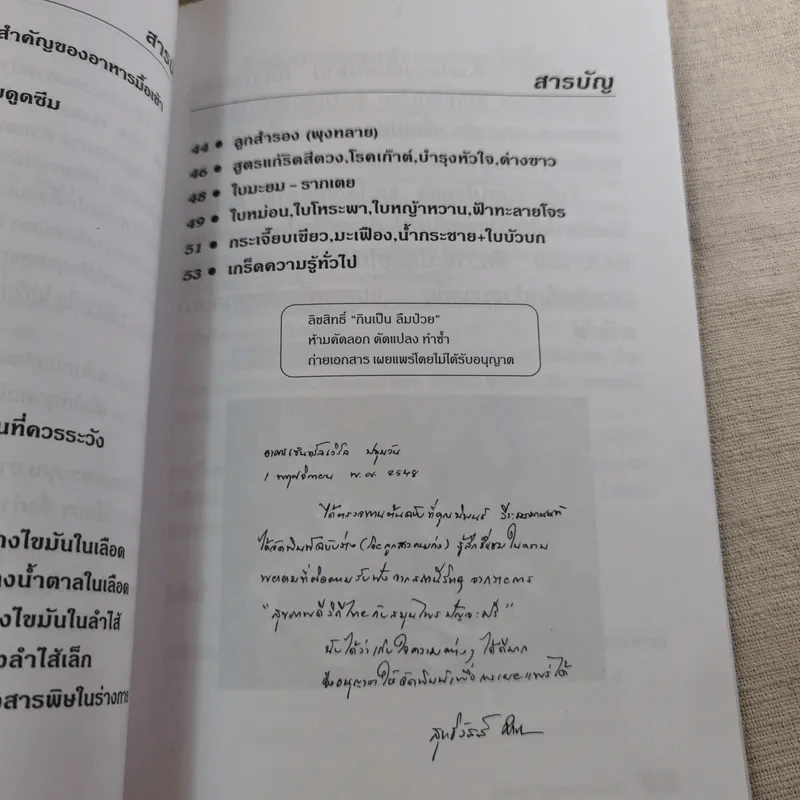 สารบ
สำคัญของอาหารมื้อเช้า
ดูดซึม
นที่ควรระวัง
างไขมันในเลือด
งน้ำตาลในเลือด
งไขมันในลำไส้
งลำไส้เล็ก
อสารพิษในร่างกาย
สารบัญ
44 • ลูกสำรอง (พุงทลาย)
46 • สูตรแก้ริดสีดวง,โรคเก๊าต์,บำรุงหัวใจ,ด่างขาว
48 • ใบมะยม - รากเตย
49 • ใบหม่อน,ใบโหระพา,ใบหญ้าหวาน,ฟ้าทะลายโจร
51 • กระเจี๊ยบเขียว,มะเฟือง,น้ำกระชาย+ใบบัวบก
53 • เกร็ดความรู้ทั่วไป
ลิขสิทธิ์ "กินเป็น ลืมป่วย"
ห้ามคัดลอก ดัดแปลง ทำซ้ำ
ถ่ายเอกสาร เผยแพร่โดยไม่ได้รับอนุญาต
อาคารเซ็นทรัลเวิลด์ ปทุมวัน
1 พฤศจิกายน พ.ศ. 2548
ได้ตรวจทานต้นฉบับที่คุณ
ได้จัดพิมพ์ฉบับร่าง รู้สึกชื่นชมในความ
พยายามที่ติดตามรับฟัง จากสถานีวิทยุ จากรายการ
"สุขภาพดีวิถีไทยกับสมุนไพร ปัญจะศรี"
นับได้ว่าเก็บใจความต่างๆ ได้ดีมาก
จึงอนุญาตให้จัดพิมพ์เพื่อการเผยแพร่ได้